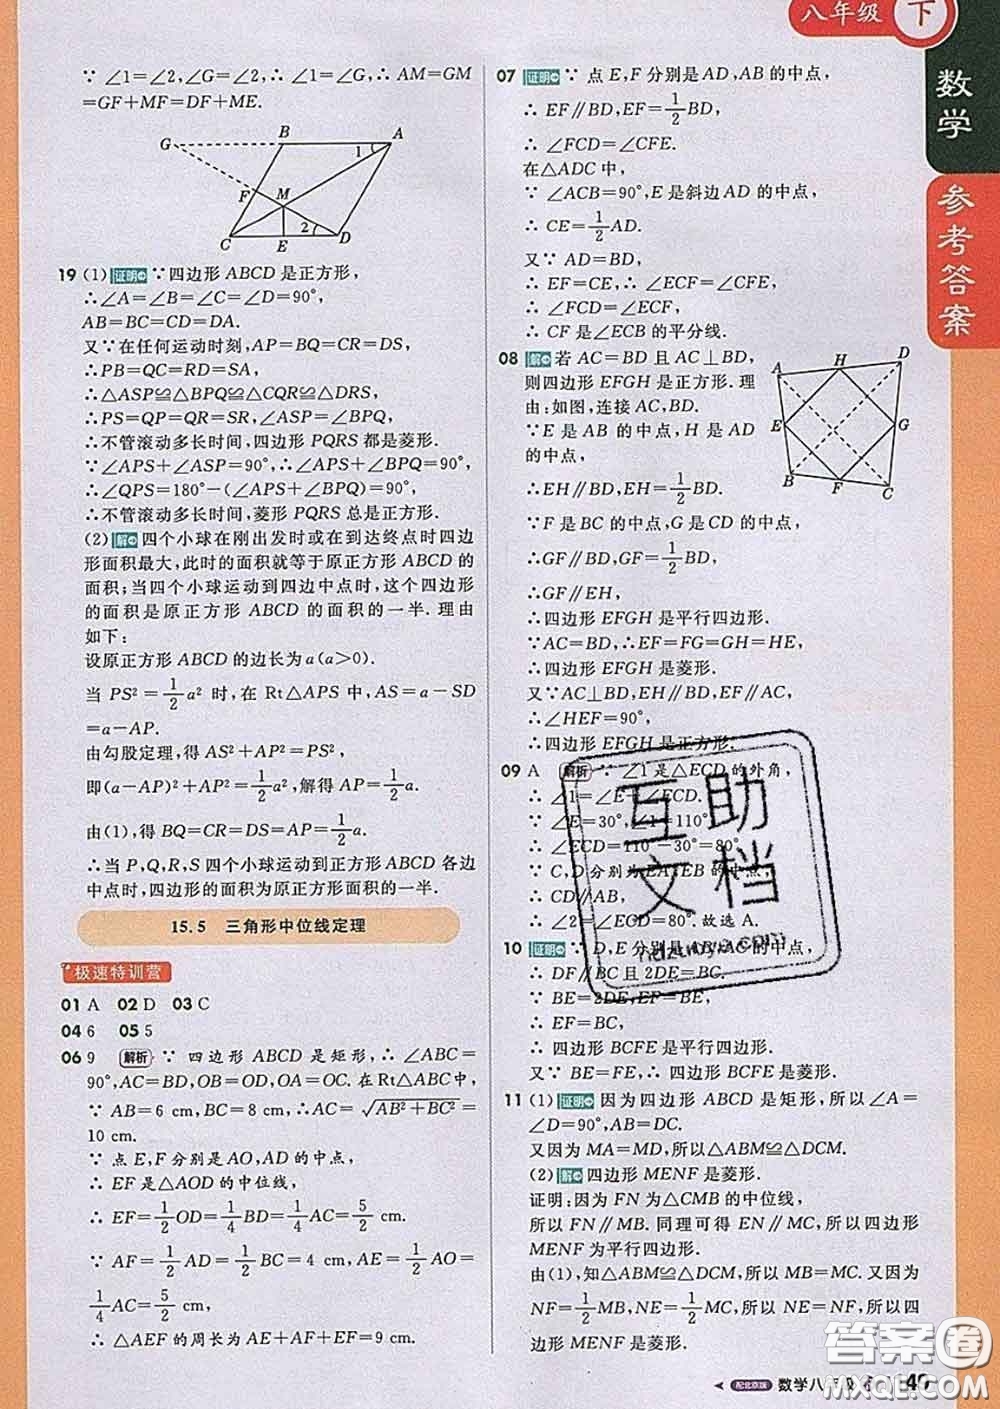 八年级 下
数学
参考答案
∵ ∠1=∠2,∠G=∠2, ∴ ∠1=∠G, ∴ AM=GM
=GF+MF=DF+ME.
G B A 1
F M
C E 2 D
19 (1) 证明 ∵四边形 ABCD 是正方形,
∴∠A=∠B=∠C=∠D=90°,
AB=BC=CD=DA.
又∵在任何运动时刻,AP=BQ=CR=DS,
∴PB=QC=RD=SA,
∴△ASP≌△BPQ≌△CQR≌△DRS,
∴PS=QP=QR=SR,∠ASP=∠BPQ,
∴不管滚动多长时间,四边形 PQRS 都是菱形.
∵∠APS+∠ASP=90°,∴∠APS+∠BPQ=90°,
∴∠QPS=180°-(∠APS+∠BPQ)=90°,
∴不管滚动多长时间,菱形 PQRS 总是正方形.
(2) 解 四个小球在刚出发时或在到达终点时四边
形面积最大,此时的面积就等于原正方形 ABCD 的
面积;当四个小球运动到四边中点时,这个四边形
的面积是原正方形 ABCD 的面积的一半. 理由
如下:
设原正方形 ABCD 的边长为 a(a>0).
当 PS²=1/2a² 时,在 Rt△APS 中,AS=a-SD
=a-AP.
由勾股定理,得 AS²+AP²=PS²,
即(a-AP)²+AP²=1/2a²,解得 AP=1/2a.
由(1),得 BQ=CR=DS=AP=1/2a.
∴当 P,Q,R,S 四个小球运动到正方形 ABCD 各边
中点时,四边形的面积为原正方形面积的一半.
15.5 三角形中位线定理
极速特训营
01 A 02 D 03 C
04 6 05 5
06 9 解析 ∵ 四边形 ABCD 是矩形, ∴ ∠ABC=
90°,AC=BD,OB=OD,OA=OC. 在 Rt△ABC 中,
∵ AB=6 cm,BC=8 cm, ∴ AC=√(AB²+BC²)=
10 cm.
∵ 点 E,F 分别是 AO,AD 的中点,
∴ EF 是△AOD 的中位线,
∴ EF=1/2OD=1/4BD=1/4AC=5/2 cm.
∵ AF=1/2AD=1/2BC=4 cm,AE=1/2AO=
1/4AC=5/2 cm,
∴ △AEF 的周长为 AE+AF+EF=9 cm.
07 证明 ∵ 点 E,F 分别是 AD,AB 的中点,
∴ EF∥BD,EF=1/2BD,
∴ ∠FCD=∠CFE.
在△ADC 中,
∵ ∠ACB=90°,E 是斜边 AD 的中点,
∴ CE=1/2AD.
又∵ AD=BD,
∴ EF=CE, ∴ ∠ECF=∠CFE,
∴ ∠FCD=∠ECF,
∴ CF 是∠ECB 的平分线.
08 解 若 AC=BD 且 AC⊥BD,
则四边形 EFGH 是正方形. 理
由:如图,连接 AC,BD.
∵E 是 AB 的中点,H 是 AD
的中点,
A H D
E G
B F C
∴EH∥BD,EH=1/2BD.
∵F 是 BC 的中点,G 是 CD 的中点,
∴GF∥BD,GF=1/2BD,
∴GF∥EH,
∴四边形 EFGH 是平行四边形.
∵AC=BD,∴EF=FG=GH=HE,
∴四边形 EFGH 是菱形.
又∵AC⊥BD,EH∥BD,EF∥AC,
∴∠HEF=90°,
∴四边形 EFGH 是正方形.
09 A 解析 ∵ ∠1 是△ECD 的外角,
∴ ∠1=∠E+∠ECD.
∵ ∠E=30°,∠1=110°,
∴ ∠ECD=110°-30°=80°.
∵ C,D 分别为 EA,EB 的中点,
∴ CD∥AB,
∴ ∠2=∠ECD=80°. 故选 A.
10 证明 ∵ D,E 分别是 AB,AC 的中点,
∴ DF∥BC 且 2DE=BC.
∵ BE=2DE,EF=BE,
∴ EF=BC,
∴ 四边形 BCFE 是平行四边形.
又∵ BE=FE, ∴ 四边形 BCFE 是菱形.
11 (1) 证明 因为四边形 ABCD 是矩形,所以∠A=
∠D=90°,AB=DC.
又因为 MA=MD,所以△ABM≌△DCM.
(2) 解 四边形 MENF 是菱形.
证明:因为 FN 为△CMB 的中位线,
所以 FN∥MB. 同理可得 EN∥MC,所以四边形
MENF 为平行四边形.
由(1),知△ABM≌△DCM,所以 MB=MC. 又因为
NF=1/2MB,NE=1/2MC,所以 NE=NF,所以四
边形 MENF 是菱形.
互助
文档
答案卷
配北京版 数学八年级 49